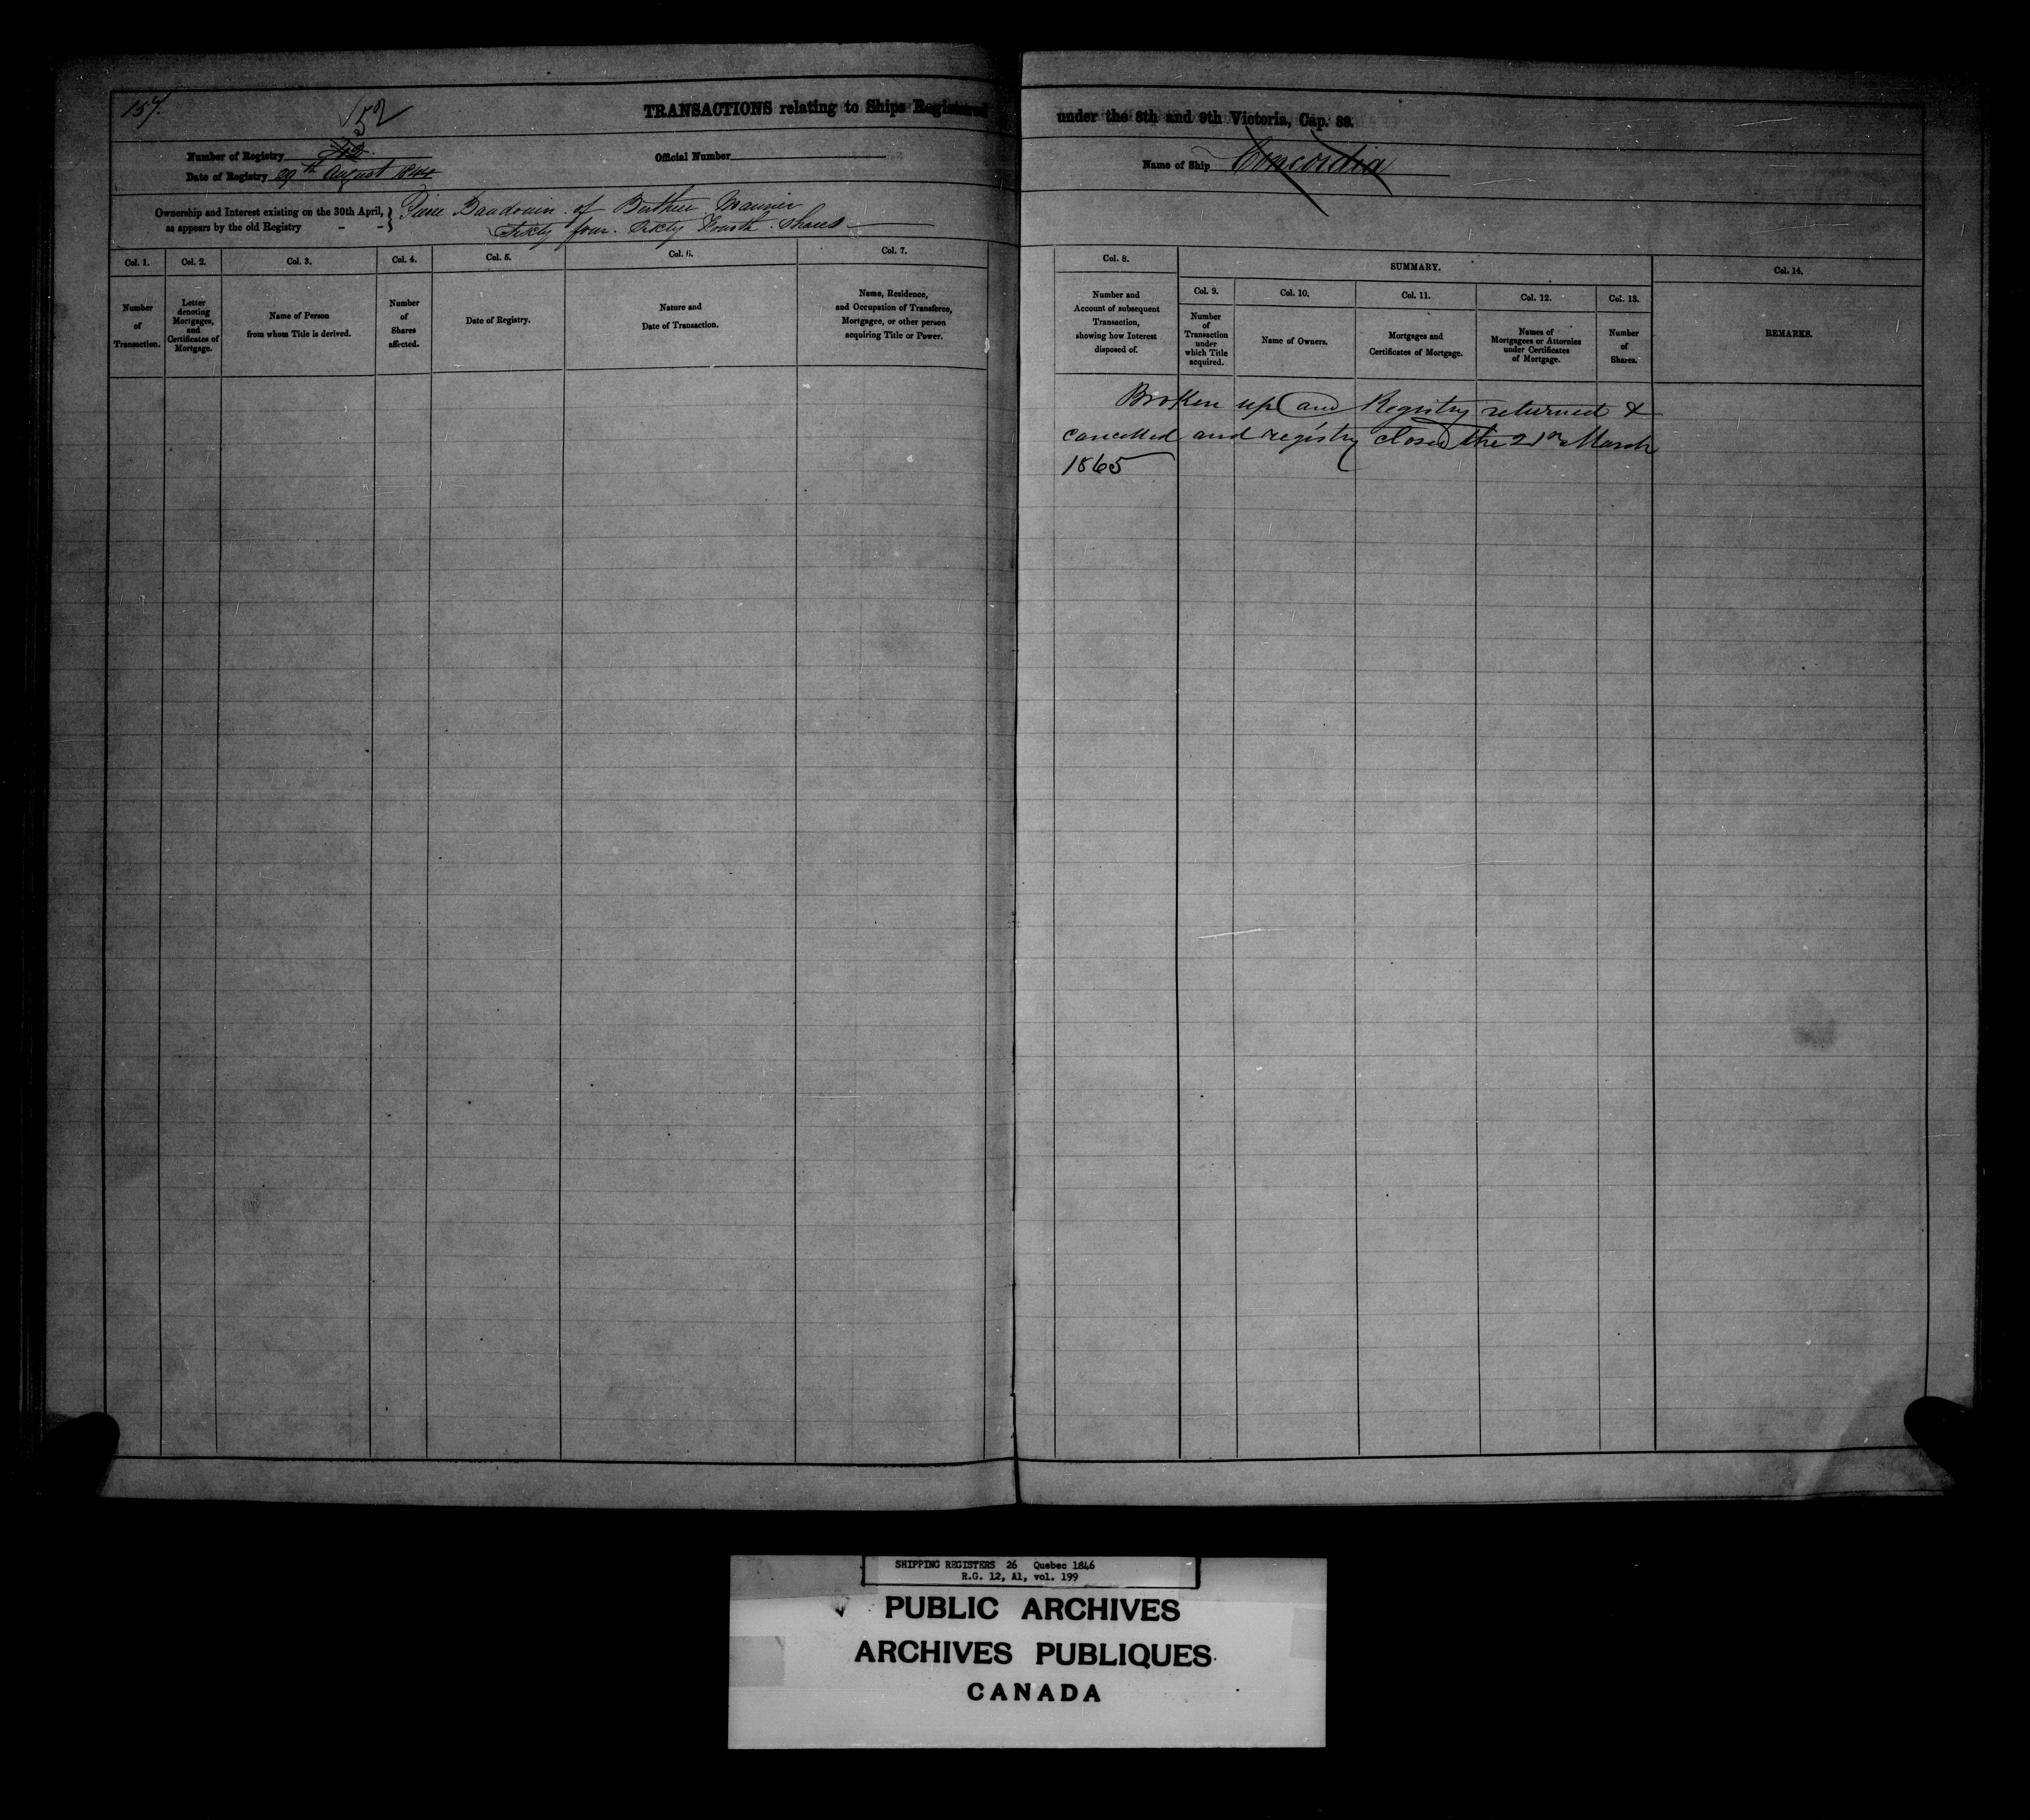 157.
52
TRANSACTIONS relating to Ships Registered under the 8th and 9th Victoria, Cap. 89.
Number of Registry
Official Number
Name of Ship Concordia
Date of Registry 29th August 1844
Ownership and Interest existing on the 30th April,
as appears by the old Registry - -
Pierre Baudouin of Berthier Mariner
Sixty four. Sixty Fourth Shares
Col. 1.
Number
of
Transaction.
Col. 2.
Letter
denoting
Mortgages,
and
Certificates of
Mortgage.
Col. 3.
Name of Person
from whom Title is derived.
Col. 4.
Number
of
Shares
affected.
Col. 5.
Date of Registry.
Col. 6.
Nature and
Date of Transaction.
Col. 7.
Name, Residence,
and Occupation of Transferee,
Mortgagee, or other person
acquiring Title or Power.
Col. 8.
Number and
Account of subsequent
Transaction,
showing how Interest
disposed of.
SUMMARY.
Col. 9.
Number
of
Transaction
under
which Title
acquired.
Col. 10.
Name of Owners.
Col. 11.
Mortgages and
Certificates of Mortgage.
Col. 12.
Names of
Mortgagees or Attornies
under Certificates
of Mortgage.
Col. 13.
Number
of
Shares.
Col. 14.
REMARKS.
Broken up and Registry returned &
cancelled and registry closed the 21st March
1865
SHIPPING REGISTERS 26 Quebec 1846
R.G. 12, A1, vol. 199
PUBLIC ARCHIVES
ARCHIVES PUBLIQUES
CANADA